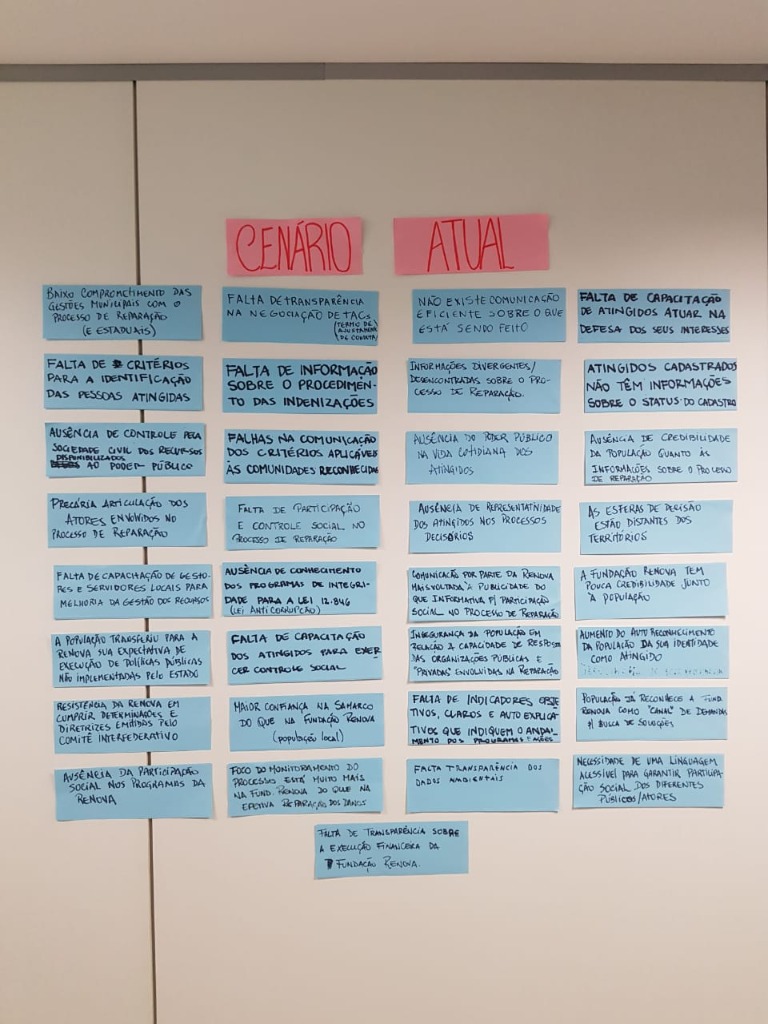 CENÁRIO ATUAL
BAIXO COMPROMETIMENTO DAS
GESTÕES MUNICIPAIS COM O
PROCESSO DE REPARAÇÃO
(E ESTADUAIS)
FALTA DE TRANSPARÊNCIA
NA NEGOCIAÇÃO DE TACs
(TERMO DE
AJUSTAMENTO
DE CONDUTA)
NÃO EXISTE COMUNICAÇÃO
EFICIENTE SOBRE O QUE
ESTÁ SENDO FEITO
FALTA DE CAPACITAÇÃO
DE ATINGIDOS ATUAR NA
DEFESA DOS SEUS INTERESSES
FALTA DE CRITÉRIOS
PARA A IDENTIFICAÇÃO
DAS PESSOAS ATINGIDAS
FALTA DE INFORMAÇÃO
SOBRE O PROCEDIMEN-
TO DAS INDENIZAÇÕES
INFORMAÇÕES DIVERGENTES/
DESENCONTRADAS SOBRE O PRO-
CESSO DE REPARAÇÃO.
ATINGIDOS CADASTRADOS
NÃO TÊM INFORMAÇÕES
SOBRE O STATUS DO CADASTRO
AUSÊNCIA DE CONTROLE PELA
SOCIEDADE CIVIL DOS RECURSOS
DISPONIBILIZADOS
AO PODER PÚBLICO
FALHAS NA COMUNICAÇÃO
DOS CRITÉRIOS APLICÁVEIS
ÀS COMUNIDADES RECONHECIDAS
AUSÊNCIA DO PODER PÚBLICO
NA VIDA COTIDIANA DOS
ATINGIDOS
AUSÊNCIA DE CREDIBILIDADE
DA POPULAÇÃO QUANTO ÀS
INFORMAÇÕES SOBRE O PROCESSO
DE REPARAÇÃO
PRECÁRIA ARTICULAÇÃO DOS
ATORES ENVOLVIDOS NO
PROCESSO DE REPARAÇÃO
FALTA DE PARTICIPAÇÃO
E CONTROLE SOCIAL NO
PROCESSO DE REPARAÇÃO
AUSÊNCIA DE REPRESENTATIVIDADE
DOS ATINGIDOS NOS PROCESSOS
DECISÓRIOS
AS ESFERAS DE DECISÃO
ESTÃO DISTANTES DOS
TERRITÓRIOS
FALTA DE CAPACITAÇÃO DE GESTO-
RES E SERVIDORES LOCAIS PARA
MELHORIA DA GESTÃO DOS RECURSOS
AUSÊNCIA DE CONHECIMENTO
DOS PROGRAMAS DE INTEGRI-
DADE PARA A LEI 12.846
(LEI ANTICORRUPÇÃO)
COMUNICAÇÃO POR PARTE DA RENOVA
MAIS VOLTADA À PUBLICIDADE DO
QUE INFORMATIVA P/ PARTICIPAÇÃO
SOCIAL NO PROCESSO DE REPARAÇÃO
A FUNDAÇÃO RENOVA TEM
POUCA CREDIBILIDADE JUNTO
À POPULAÇÃO
A POPULAÇÃO TRANSFERIU PARA A
RENOVA SUA EXPECTATIVA DE
EXECUÇÃO DE POLÍTICAS PÚBLICAS
NÃO IMPLEMENTADAS PELO ESTADO
FALTA DE CAPACITAÇÃO
DOS ATINGIDOS PARA EXER
CER CONTROLE SOCIAL
INSEGURANÇA DA POPULAÇÃO EM
RELAÇÃO A CAPACIDADE DE RESPOSTA
DAS ORGANIZAÇÕES PÚBLICAS E
"PRIVADAS" ENVOLVIDAS NA REPARAÇÃO
AUMENTO DO AUTO RECONHECIMENTO
DA POPULAÇÃO DA SUA IDENTIDADE
COMO ATINGIDO
RESISTÊNCIA DA RENOVA EM
CUMPRIR DETERMINAÇÕES E
DIRETRIZES EMITIDAS PELO
COMITÊ INTERFEDERATIVO
MAIOR CONFIANÇA NA SAMARCO
DO QUE NA FUNDAÇÃO RENOVA
(população local)
FALTA DE INDICADORES OBJE
TIVOS, CLAROS E AUTO EXPLICA
TIVOS QUE INDIQUEM O ANDA-
MENTO DOS PROGRAMAS/AÇÕES
POPULAÇÃO JÁ RECONHECE A FUND.
RENOVA COMO "CANAL" DE DEMANDAS
P/ BUSCA DE SOLUÇÕES
AUSÊNCIA DA PARTICIPAÇÃO
SOCIAL NOS PROGRAMAS DA
RENOVA
FOCO DO MONITORAMENTO DO
PROCESSO ESTÁ MUITO MAIS
NA FUND. RENOVA DO QUE NA
EFETIVA REPARAÇÃO DOS DANOS
FALTA TRANSPARÊNCIA DOS
DADOS AMBIENTAIS
NECESSIDADE DE UMA LINGUAGEM
ACESSÍVEL PARA GARANTIR PARTICIPA-
ÇÃO SOCIAL DOS DIFERENTES
PÚBLICOS/ATORES
FALTA DE TRANSPARÊNCIA SOBRE
A EXECUÇÃO FINANCEIRA DA
FUNDAÇÃO RENOVA.